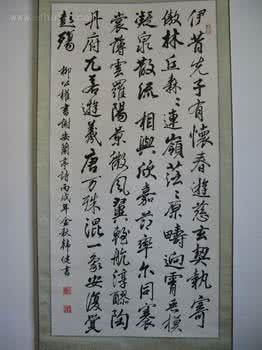 伊昔先子有懷春遊契執寄
傲林丘森〻連嶺茫〻原疇迥霄垂
凝泉散流相與欣嘉節率尔同褰
裳薄雲羅陽景微風翼輕航淳醪陶
丹府兀若遊羲唐万殊混一象安復覺
彭殤
柳公權書謝安蘭亭詩丙戌年金秋韓健書